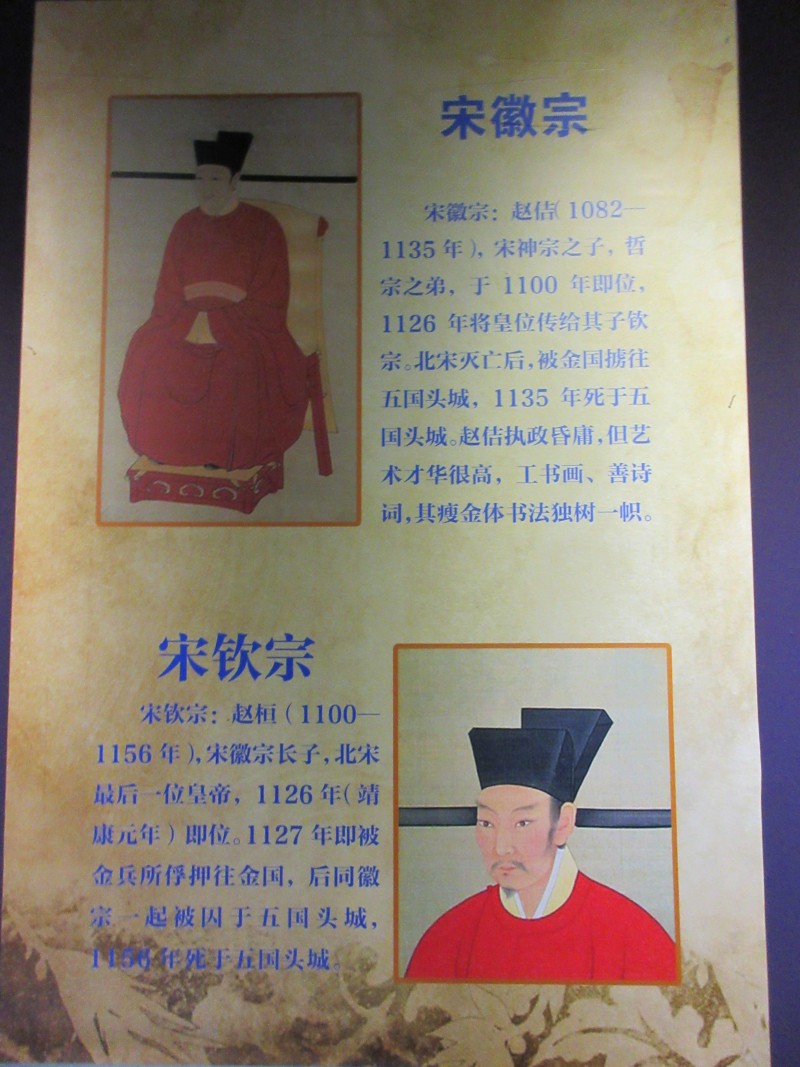 宋徽宗
宋徽宗：赵佶（1082—
1135 年），宋神宗之子，哲
宗之弟，于 1100 年即位，
1126 年将皇位传给其子钦
宗。北宋灭亡后，被金国掳往
五国头城，1135 年死于五
国头城。赵佶执政昏庸，但艺
术才华很高，工书画、善诗
词，其瘦金体书法独树一帜。
宋钦宗
宋钦宗：赵桓（1100—
1156 年），宋徽宗长子，北宋
最后一位皇帝，1126 年（靖
康元年）即位。1127 年即被
金兵所俘押往金国，后同徽
宗一起被囚于五国头城，
1156 年死于五国头城。